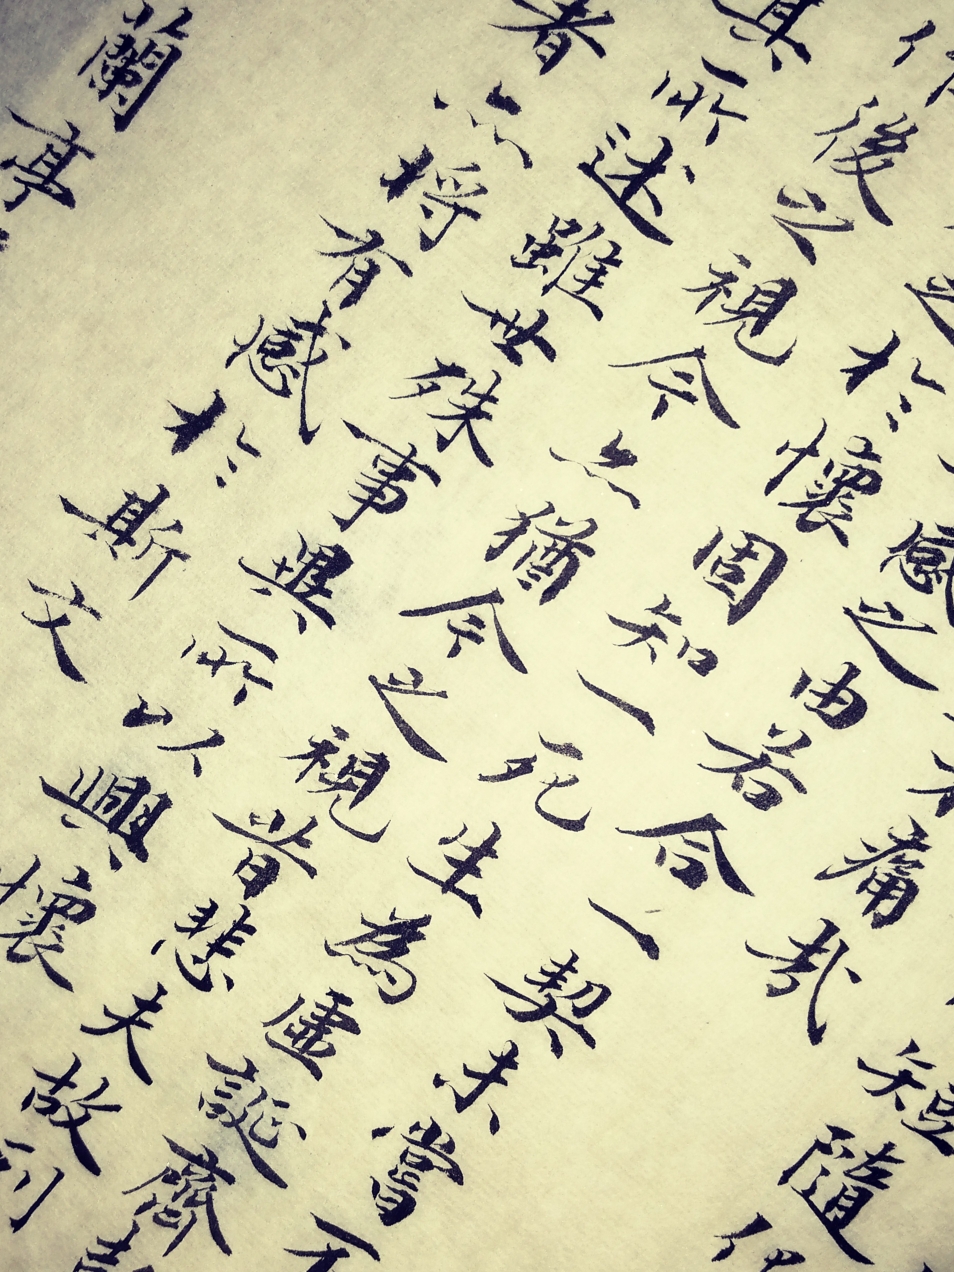 短隨化
痛哉
感之由若合一契未嘗不
之於懷固知一死生為虛誕齊
後之視今亦猶今之視昔悲夫故列
其所述雖世殊事異所以興懷
者亦将有感於斯文
蘭亭